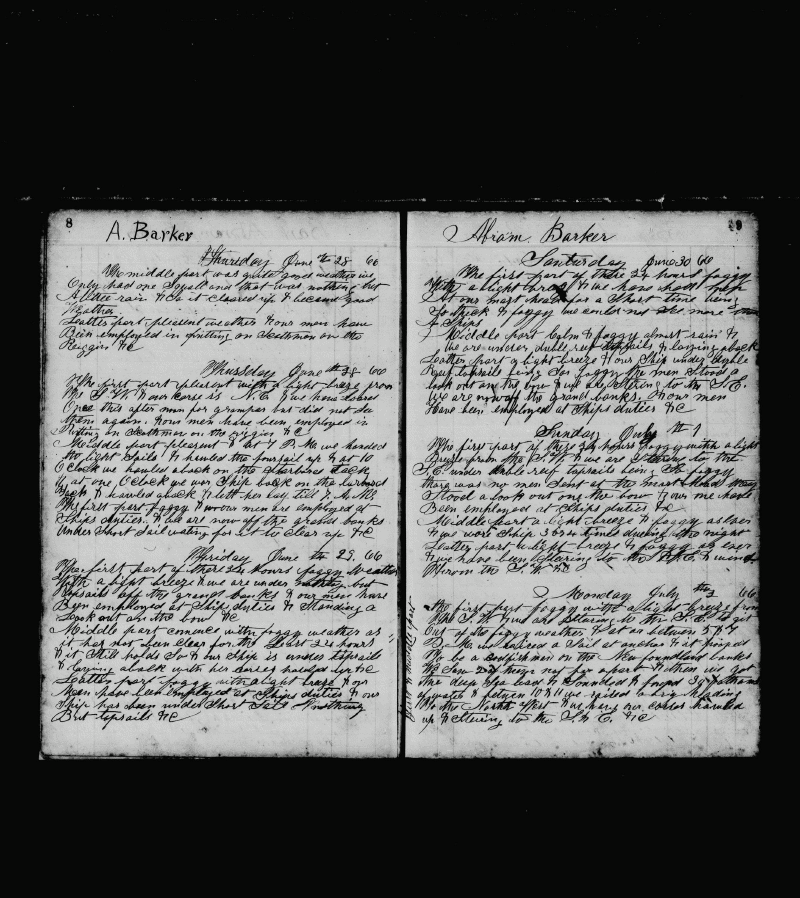 8
A. Barker
Thursday June th 28 66
The middle part was quite good weather we
Only had one Squall and that was nothing but
A little rain & c it cleared up & became good
Weather
Latter part plesent weather & our men have
Been employed in putting on Seathmen on the
Reiggin &C
Thussday June th 28 66
The first part plesent with a light breeze from
The S. W. & our corse is N. E. & we have lowed
Once this after noon for grampas but did not see
them again. & our men have been employed in
Putting on Seathmen on the riggin &C
Middle part plesent & at 7 P.M. we handed
the light Sails & hauled the foursail up & at 10
O clock we hauled aback on the Starbord tack
& at one O clock we wore Ship back on the larbord
tack & hauled aback & left her lay till 7. A. M.
The first part foggy & our men are employed at
Ships duties. & we are now off the grand banks
Under Short Sail wating for it to clear up &c
Friday June th 29. 66
The first part of these 24 hours foggy Weather
With a light breeze & we are under nothing but
topsails off the grand banks & our men have
Been employed at Ships duties & Standing a
Look out on the bow &c
Middle part comence with foggy weather as
it has not been clear for the Last 24 hours
& it Still holds So & our Ship is under topsails
& laying aback with his corses hauled up &C
Latter part foggy with a light breeze & our
Men have been employed at Ships duties & our
Ship has been under Short Sail & nothing
But topsails &C
29
Abram Barker
Santurday June 30 66
The first part of these 24 hours foggy
With a light breeze & we have had men
At our mast head for a Short time being
So thick & foggy we could not See more than
Ships
Middle part Calm & foggy almost rain &
we are under duble reef topsails & laying aback
Latter part a light breeze & our Ship under duble
Reef topsails being So foggy the men Stood a
look out on the bow & we are Stering to the S. E.
We are now off the grand banks. & our men
Have been employed at Ships duties &C
Sunday July th 1
The first part of these 24 hours foggy with a light
Breeze from the S. W. & we are Stering to the
S. E. under duble reef topsails being So foggy
there was no men Sent at the mast head they
Stood a look out one the bow & our me have
Been employed at Ships duties &c
Middle part a light breeze & foggy as ever
& we wore Ship 3 ore times dueing the night
Latter part a light breeze & foggy as ever
& we have been Stering to the S. E. & wind
Whrom the S. W. &C
Monday July th 2 66
The first part foggy with a light breeze from
The S. W. & we are Stering to the S. E. to get
Out of the foggy weather & at as between 5 & 7
P. M. we raised a Sail at anchor & it proved
to be a fishman on the New foundland banks
We Saw no heigs nay in after & then we got
the deep Sea lead & Sounded & found 39 fathoms
of water & between 10 & 11 we raised a brig heading
to the North West & we hung our corses hauled
up & Stering to the S. E. &C